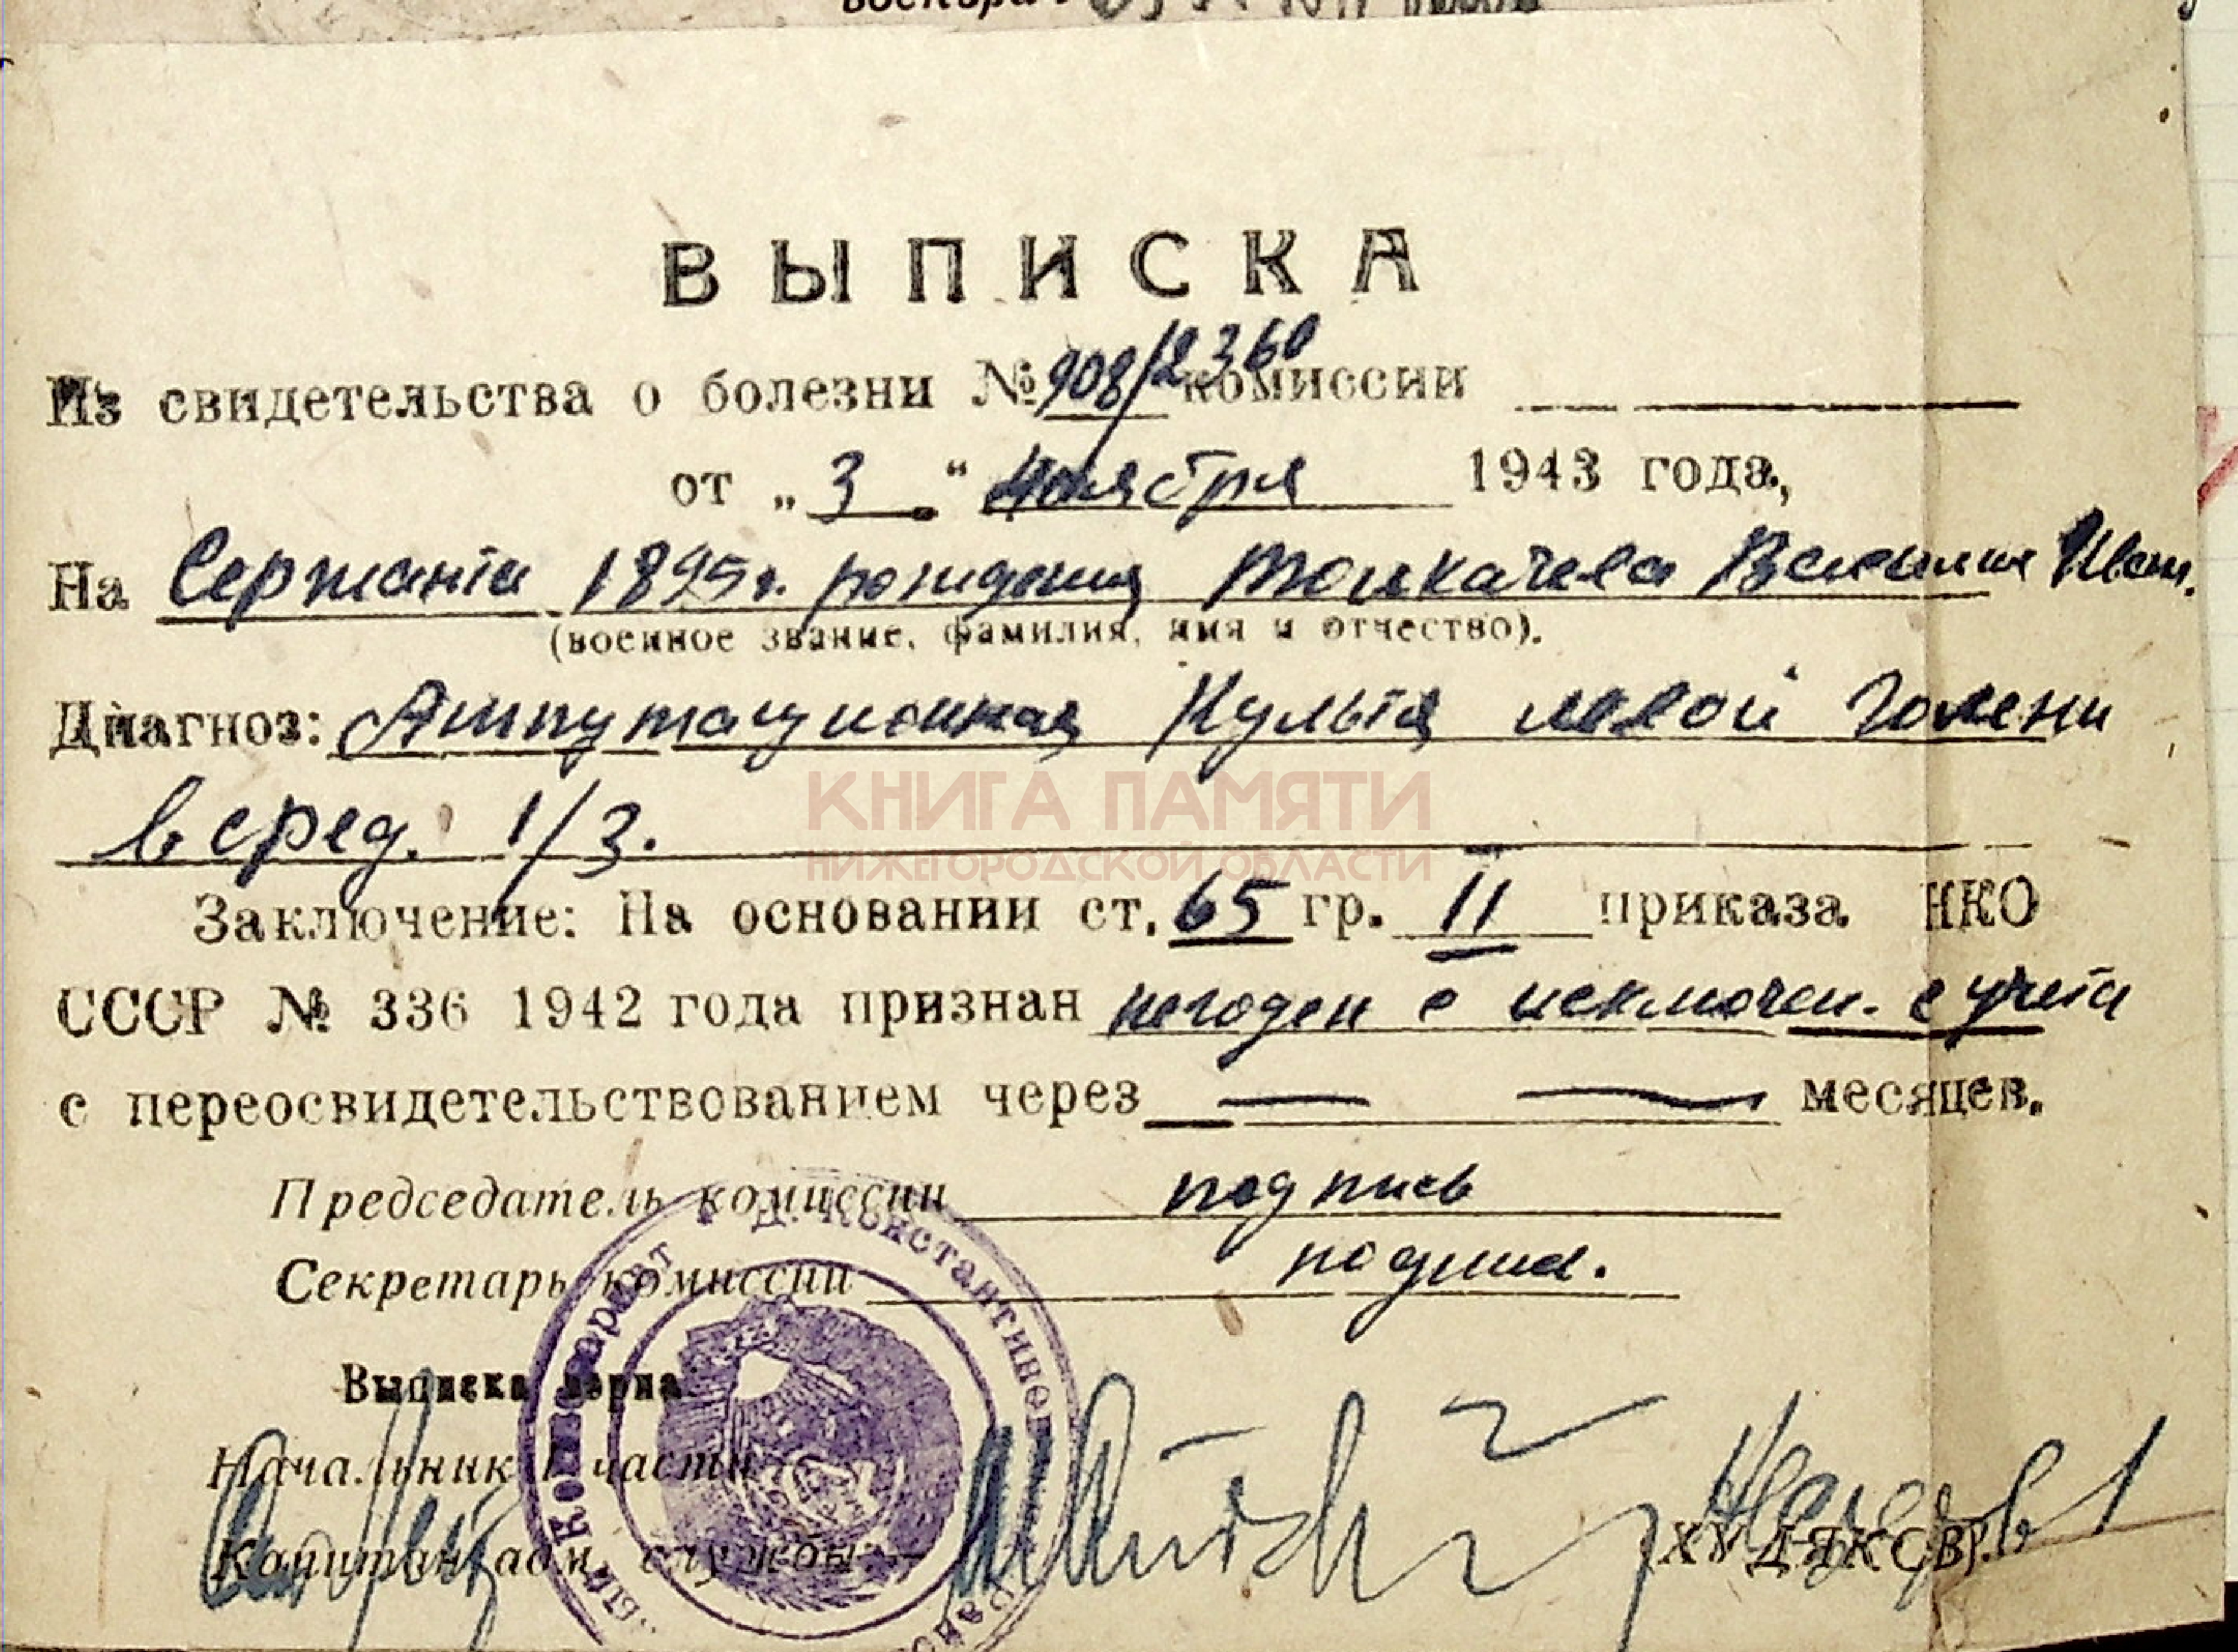 ВЫПИСКА
Из свидетельства о болезни № 908/2360 комиссии
от „3" ноября 1943 года,
На Сержанта 1895 г. рождения Толкачева Василия Иван.
(военное звание, фамилия, имя и отчество).
Диагноз: Ампутационная Культя левой голени
в сред. 1/3.
КНИГА ПАМЯТИ
НИЖЕГОРОДСКОЙ ОБЛАСТИ
Заключение: На основании ст. 65 гр. II приказа НКО
СССР № 336 1942 года признан негоден с исключен. с учета
с переосвидетельствованием через — — месяцев.
Председатель комиссии подпись
Секретарь комиссии подпись.
Выписка верна
Начальник 1 части
Капитан адм. службы
(ХУДЯКОВ).